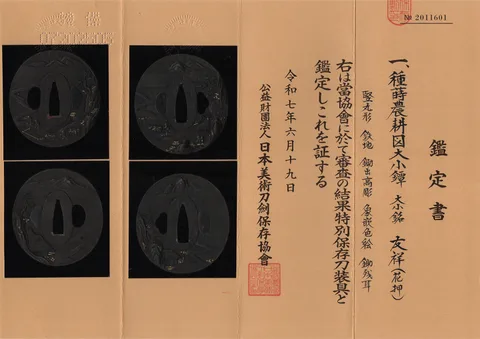 № 2011601
鑑定書
一、種蒔農耕図大小鐔 大小銘 友祥(花押)
竪丸形 鉄地 鋤出高彫 象嵌色絵 鋤残耳
右は當協會に於て審査の結果特別保存刀装具と
鑑定しこれを証する
令和七年六月十九日
公益財團法人 日本美術刀剣保存協會